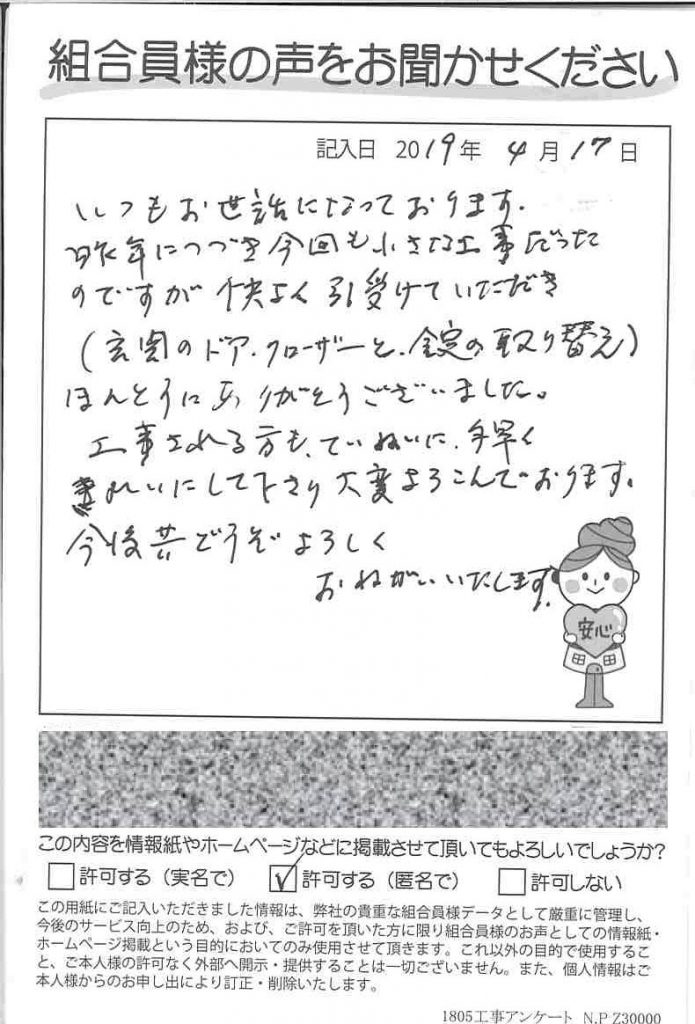 組合員様の声をお聞かせください
記入日 2019年 4月17日
いつもお世話になっております.
昨年につづき今回も小さな工事だった
のですが 快よく引受けていただき
(玄関のドア.クローザーと.錠の取り替え)
ほんとうにありがとうございました。
工事される方も、ていねいに.手早く
きれいにして下さり大変よろこんでおります。
今後共どうぞよろしく
おねがいいたします.
安心
この内容を情報紙やホームページなどに掲載させて頂いてもよろしいでしょうか?
□許可する(実名で) ☑許可する(匿名で) □許可しない
この用紙にご記入いただきました情報は、弊社の貴重な組合員様データとして厳重に管理し、
今後のサービス向上のため、および、ご許可を頂いた方に限り組合員様のお声としての情報紙・
ホームページ掲載という目的においてのみ使用させて頂きます。これ以外の目的で使用するこ
と、ご本人様の許可なく外部へ開示・提供することは一切ございません。また、個人情報はご
本人様からのお申し出により訂正・削除いたします。
1805工事アンケート N.P Z30000